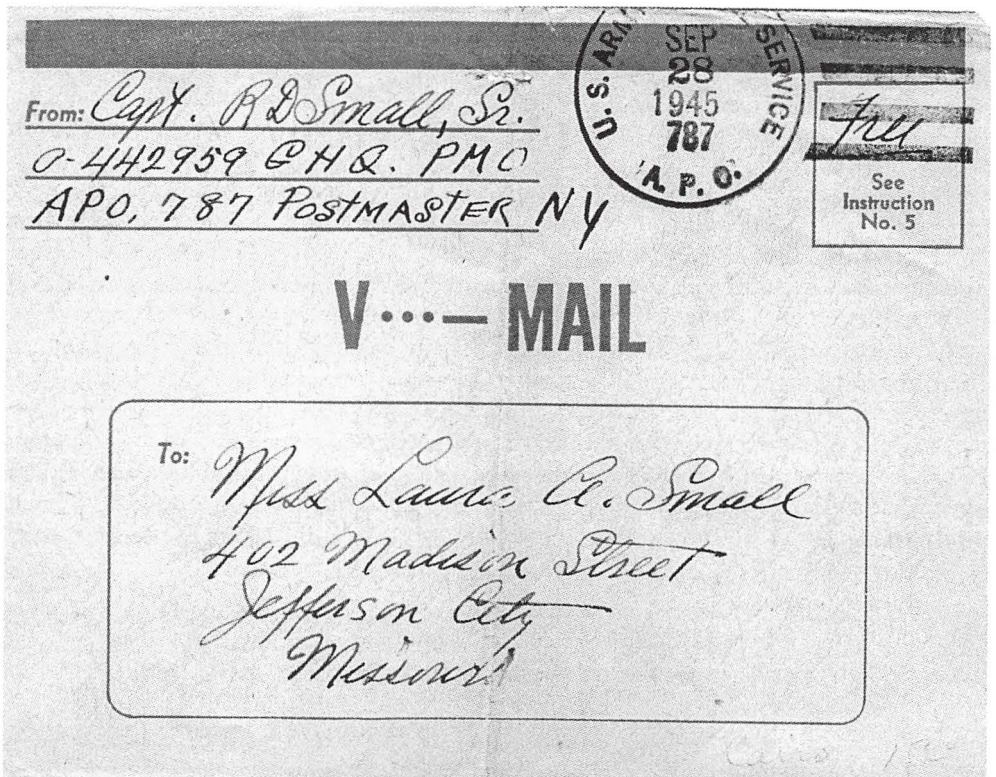 From: Capt. R D Small, Sr.
O-442959 G H Q. PMO
APO, 787 POSTMASTER NY
U.S. ARMY SERVICE
SEP
28
1945
787
A. P. O.
Free
See
Instruction
No. 5
V···— MAIL
To: Miss Laura A. Small
402 Madison Street
Jefferson City
Missouri